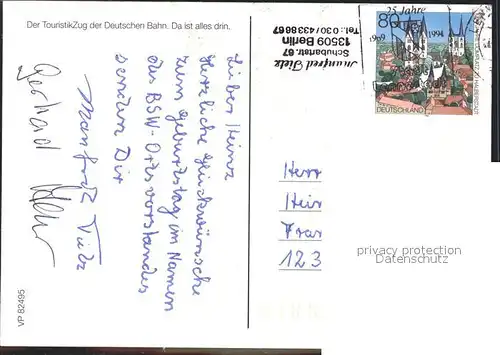 Der TouristikZug der Deutschen Bahn. Da ist alles drin.
Lieber Heinz
Herzliche Glückwünsche
zum Geburtstag im Namen
des BSW-Ortsvorstandes
senden Dir
Manfred
Gerhard
VP 82495
Manfred
Schubartstr. 67
13509 Berlin
Tel.: 030/
25 Jahre
1969 1994
80
DEUTSCHLAND
Herr
Hein
Fran
123
privacy protection
Datenschutz